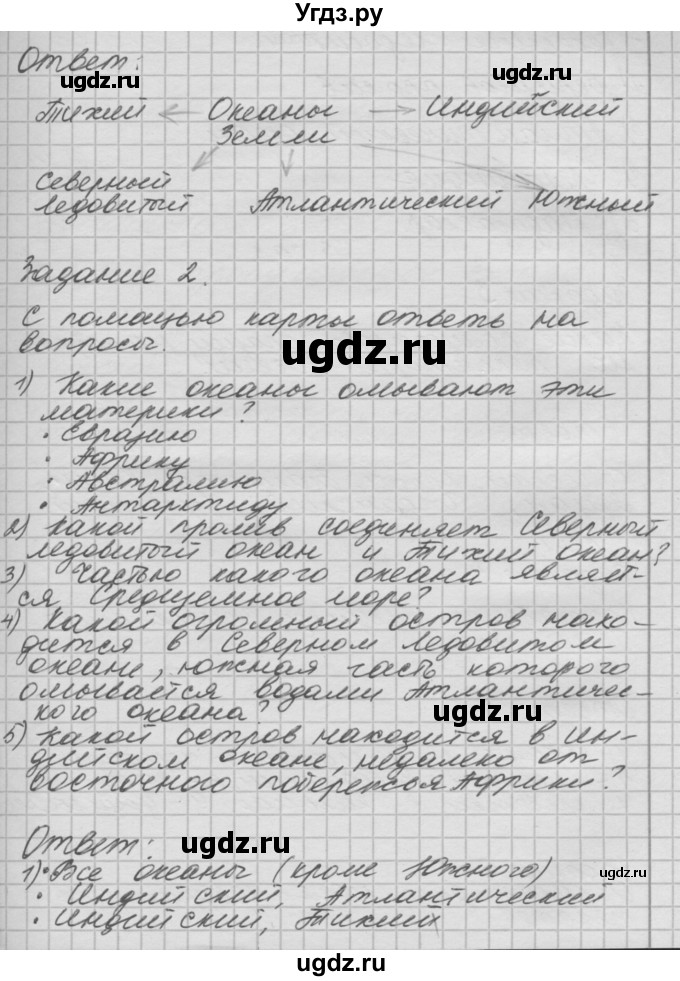 Угдз.ру
Ответ:
ugdz.ru
ugdz.ru
Тихий Океаны Индийский
Земли
Северный
Ледовитый Атлантический Южный
Задание 2.
С помощью карты ответь на
вопросы.
ugdz.ru
1) Какие океаны омывают эти
материки?
• Евразию
• Африку
• Австралию
• Антарктиду
2) Какой пролив соединяет Северный
Ледовитый океан и Тихий океан?
3) Частью какого океана являет-
ся Средиземное море?
4) Какой огромный остров нахо-
дится в Северном Ледовитом
океане, южная часть которого
омывается водами Атлантичес-
кого океана?
ugdz.ru
5) Какой остров находится в Ин-
дийском океане, недалеко от
восточного побережья Африки?
Ответ:
ugdz.ru
1) • Все океаны (кроме Южного)
• Индийский, Атлантический
• Индийский, Тихий
ugdz.ru